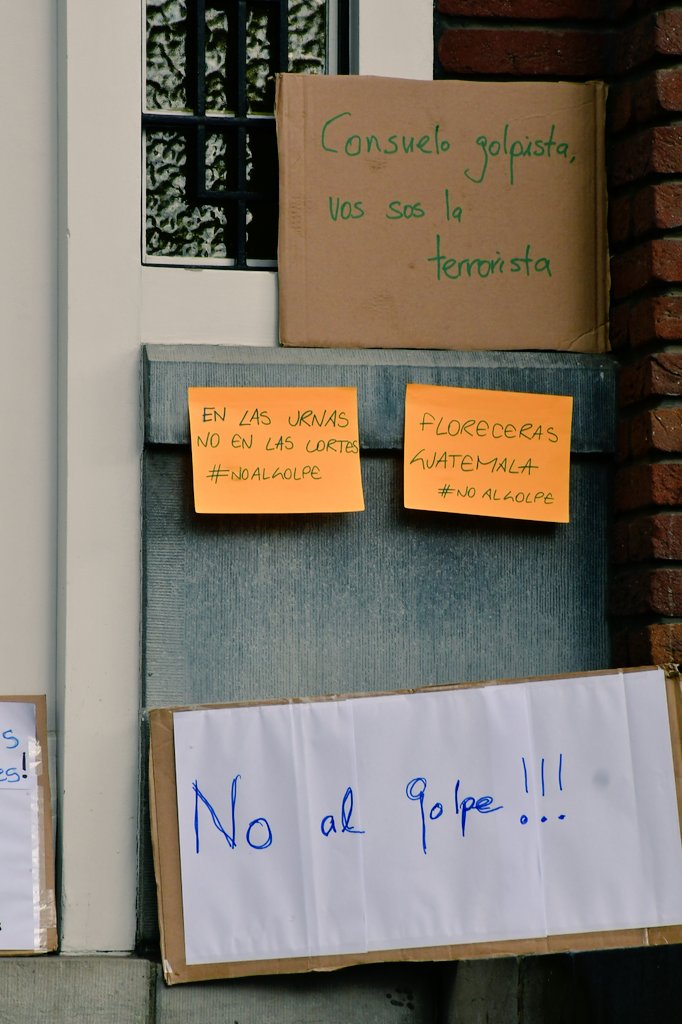 Consuelo golpista,
vos sos la
terrorista
EN LAS URNAS
NO EN LAS CORTES
#NOALGOLPE
FLORECERAS
GUATEMALA
#NO ALGOLPE
s
es!
No al golpe !!!